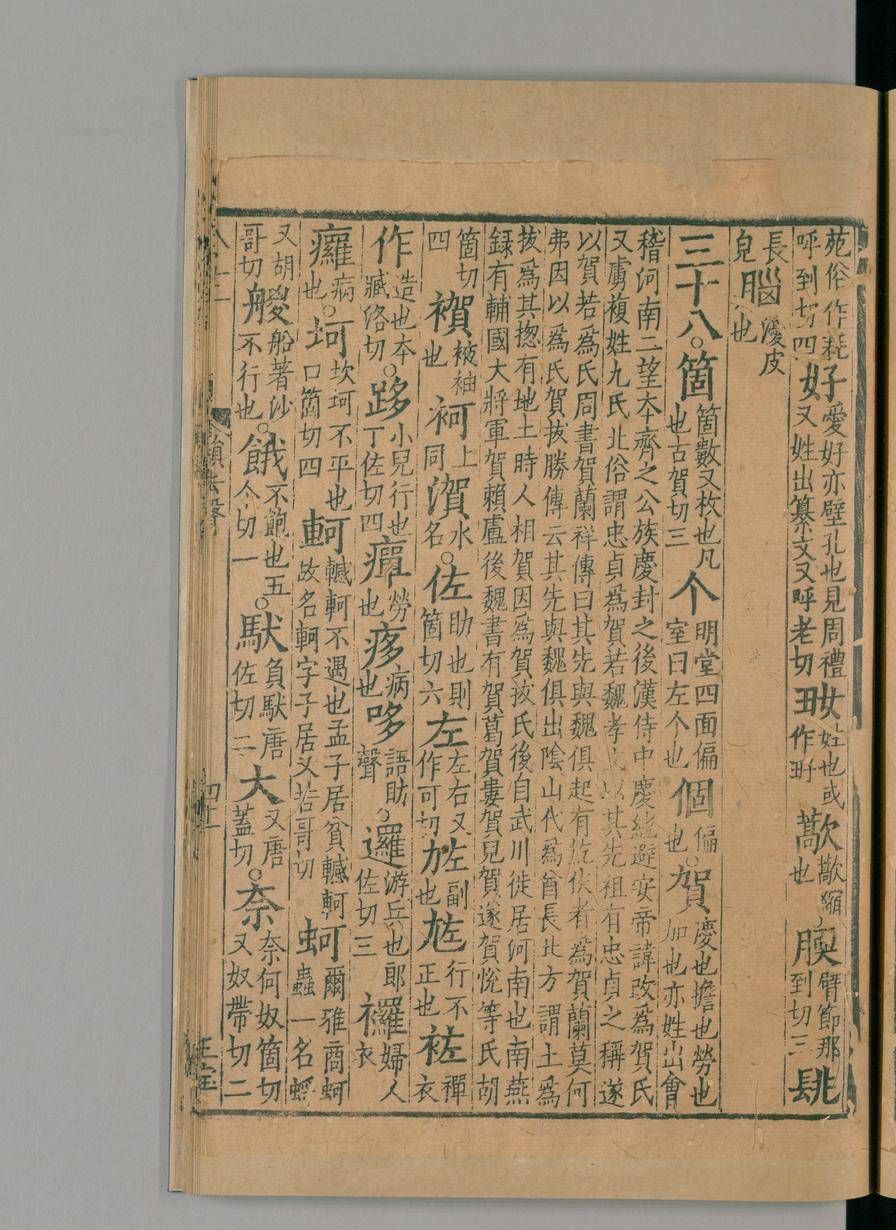 苑俗作耗呼到切四好愛好亦壁孔也見周禮又姓出纂文又呼老切𡚽姓也或作㺿歊歊縮也腝臂節那到切三
長皃腦優皮也
三十八。箇箇數又枚也凡也古賀切三个明堂四面偏室曰左个也個偏也。賀慶也擔也勞也加也亦姓出會
稽河南二望本齊之公族慶封之後漢侍中慶純避安帝諱改爲賀氏
又虜複姓九氏北俗謂忠貞爲賀若魏孝文以其先祖有忠貞之稱遂
以賀若爲氏周書賀蘭祥傳曰其先與魏俱起有紇伏者爲賀蘭莫何
弗因以爲氏賀拔勝傳云其先與魏俱出陰山代爲酋長北方謂土爲
拔爲其揔有地土時人相賀因爲賀拔氏後自武川徙居河南也南燕
録有輔國大將軍賀賴盧後魏書有賀葛賀婁賀兒賀遂賀悅等氏胡
箇切四被袖也袔上同水名。佐助也則箇切六左左右又作可切㔫副也行不正也袏襌衣
作造也本臧洛切。跢小兒行也丁佐切四癉勞也病也哆語助聲。邏游兵也郎佐切三婦人衣
病也。坷坎坷不平也口箇切四軻轗軻不遇也孟子居貧轗軻故名軻字子居又苦哥切蚵爾雅商蚵蟲一名蜉
又胡哥切艐船著沙不行也。餓不飽也五个切一。馱負馱唐佐切二大又唐蓋切。奈奈何奴箇切又奴帶切二
四十一
王宝